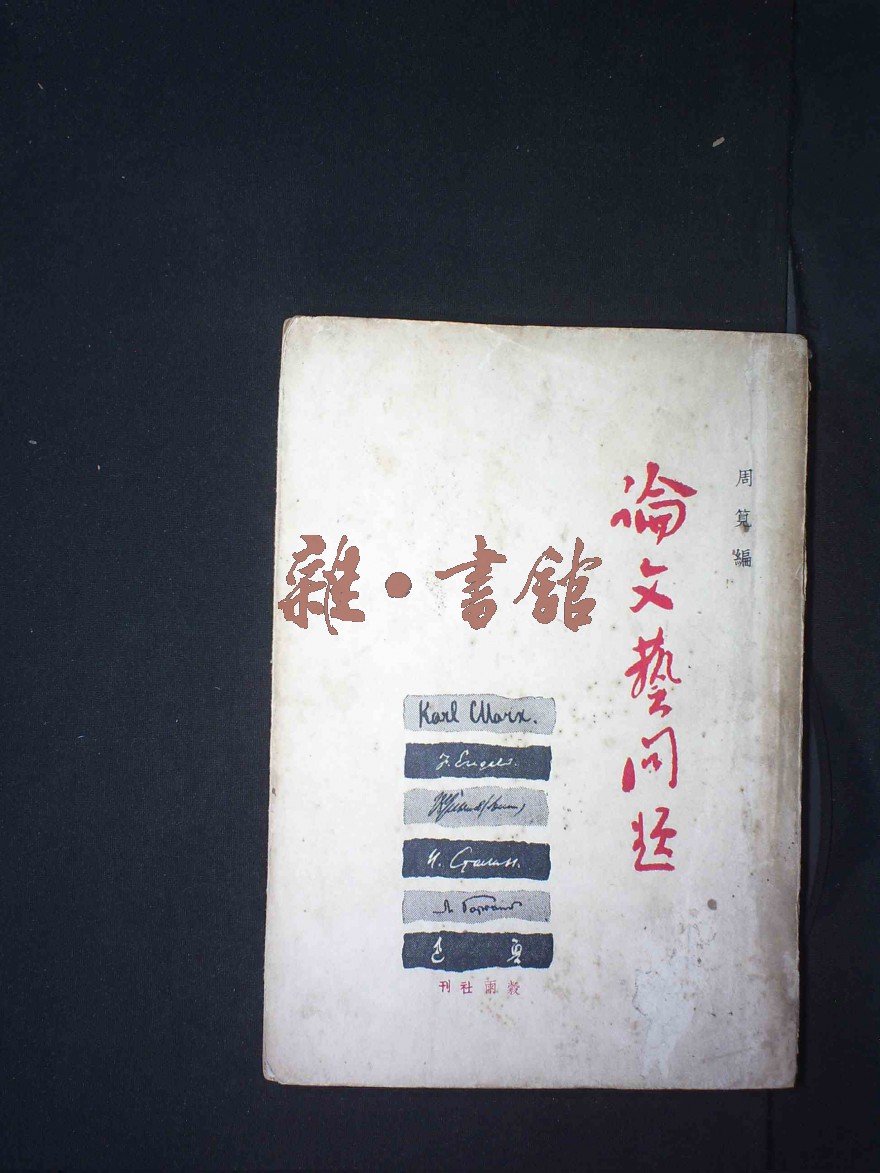 周筧編
論文藝問題
雜·書館
Karl Marx.
F. Engels.
И. Сталин.
М. Горький
魯迅
穀雨社刊